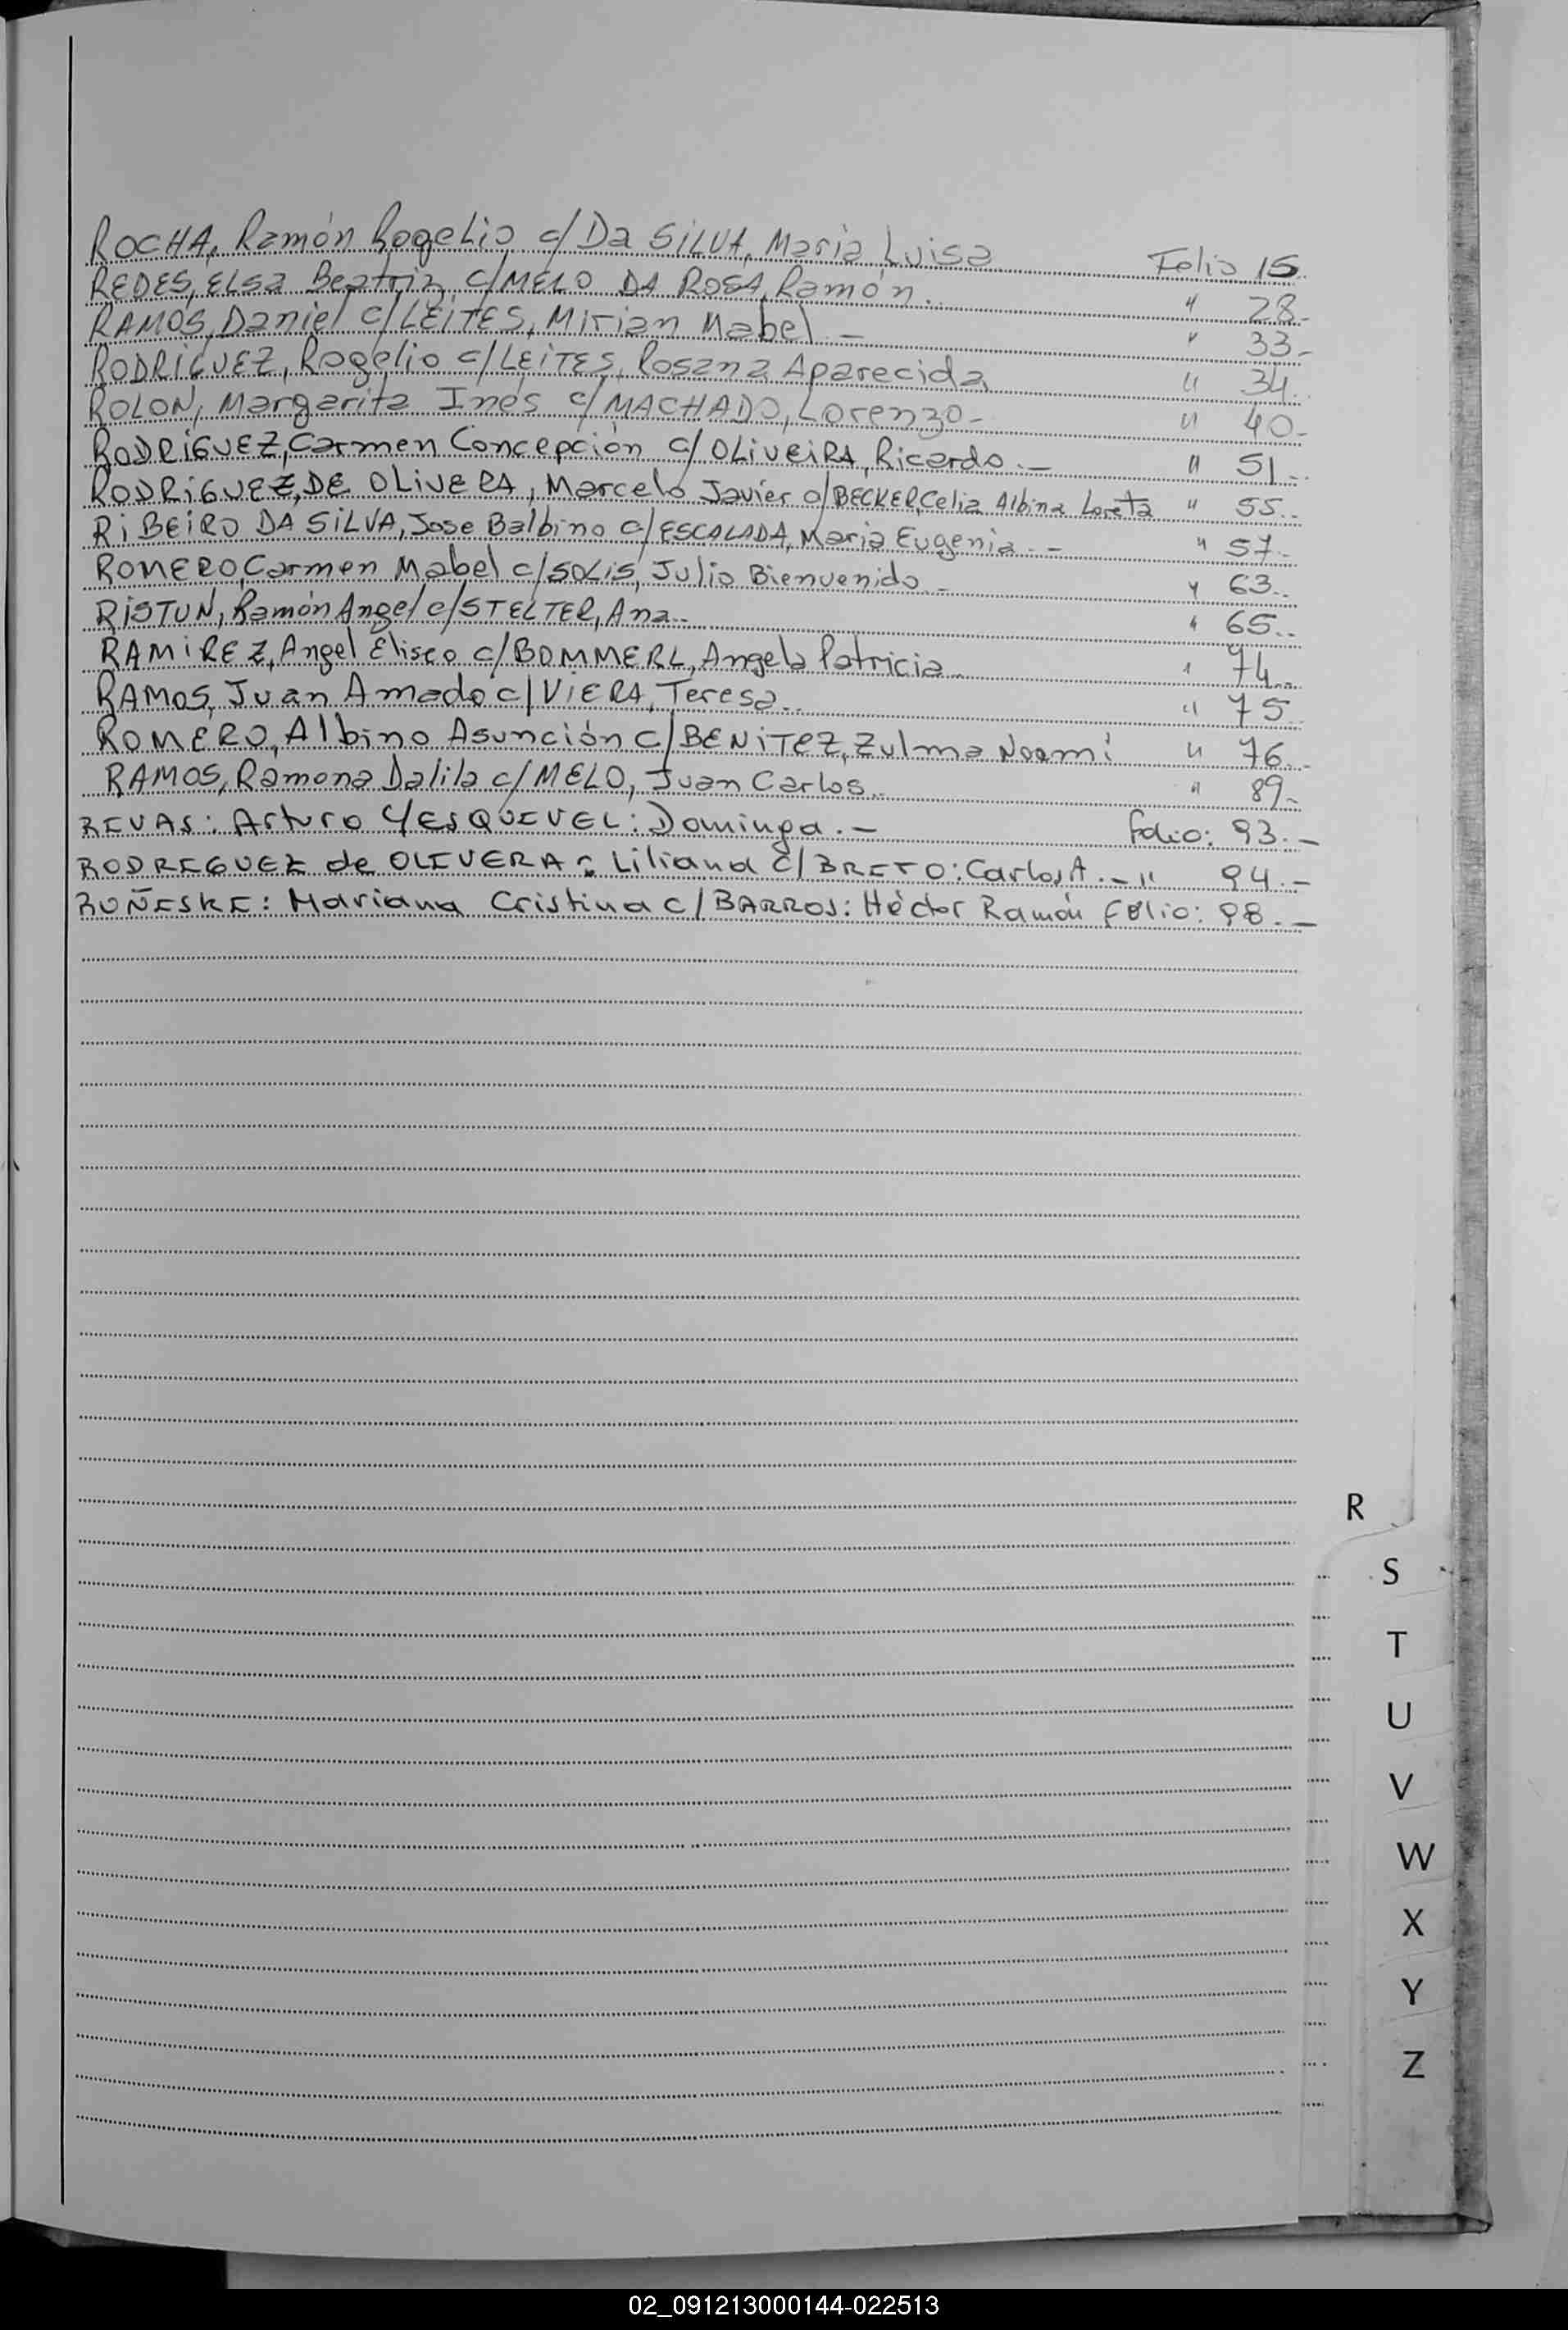 ROCHA, Ramón Rogelio c/ Da SiLVA, Maria Luisa Folio 15.
REDES, ELsa Beatriz c/MELO DA ROSA, Ramón. " 28.-
RAMOS, Daniel c/LEiTES, Mirian Mabel.- " 33.-
RODRÍGUEZ, Rogelio c/LEiTES, Rosana Aparecida " 34.
ROLON, Margarita Inés c/MACHADO, Lorenzo- " 40.-
RODRiGUEZ, Carmen Concepción c/ OLiVEiRA, Ricardo.- " 51.-
RODRiGUEZ, DE OLiVERA, Marcelo Javier c/BECKER, Celia Albina Loreta " 55..
RiBEiRO DA SiLVA, Jose Balbino c/ESCALADA, Maria Eugenia.- " 57.-
ROMERO, Carmen Mabel c/SOLiS, Julio Bienvenido.- " 63..
RiSTUN, Ramón Angel c/STELTER, Ana.. " 65..
RAMiREZ, Angel Eliseo c/BOMMERL, Angela Patricia.. " 74..
RAMOS, Juan Amado c/ViERA, Teresa.. " 75.
ROMERO, Albino Asunción c/BENiTEZ, Zulma Noemi " 76..
RAMOS, Ramona Dalila c/MELO, Juan Carlos.. " 89-
RIVAS: Arturo Y ESQUIVEL: Dominga.- folio: 93.-
RODRIGUEZ de OLIVERA: Liliana c/ BRITO: Carlos A.- " 94.-
RUÑESKE: Mariana Cristina c/ BARROS: Héctor Ramón folio: 98.-
R
S
T
U
V
W
X
Y
Z
02_091213000144-022513